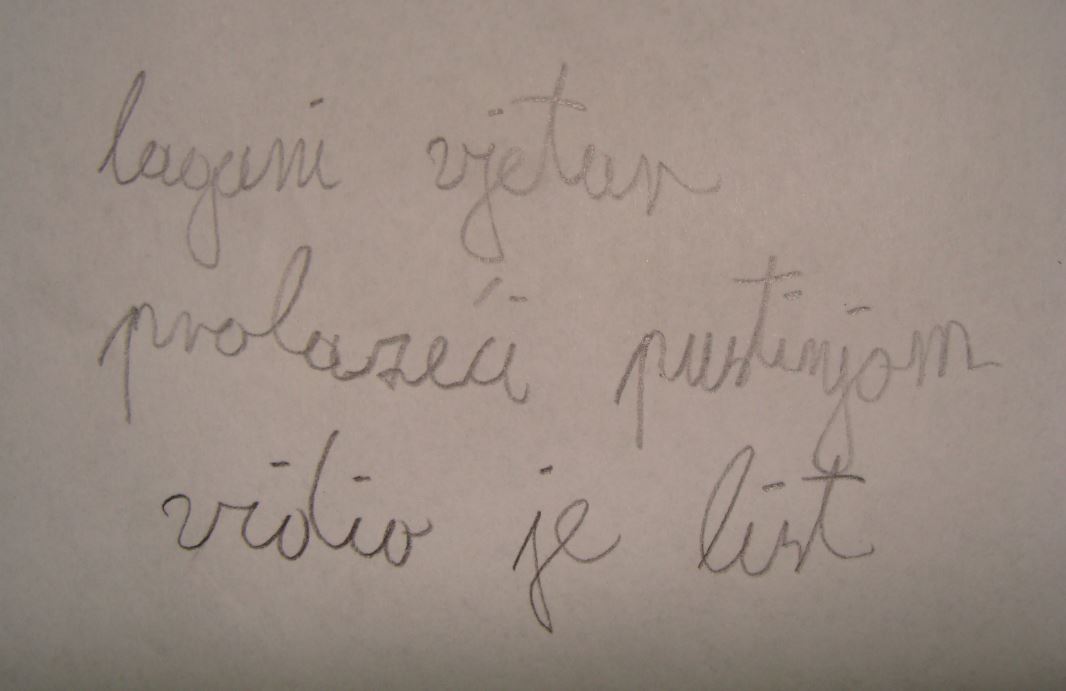 lagani vjetar
prolazeći pustinjom
vidio je list